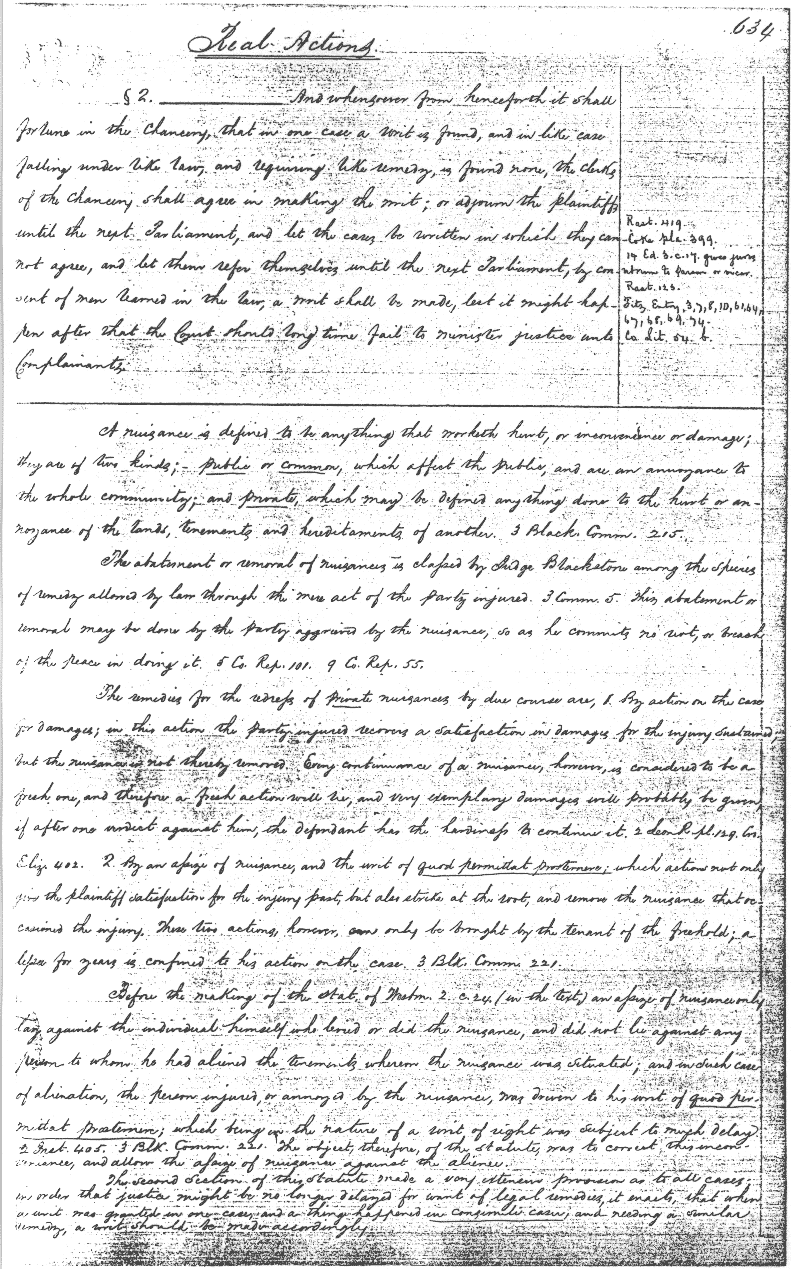 634
Real Actions.
§ 2. And whensoever from henceforth it shall
fortune in the Chancery, that in one case a writ is found, and in like case
falling under like law, and requiring like remedy, is found none, the clerks
of the Chancery shall agree in making the writ; or adjourn the plaintiffs
until the next Parliament, and let the cases be written in which they can
not agree, and let them refer themselves until the next Parliament, by con-
sent of men learned in the law, a writ shall be made, lest it might hap-
pen after that the Court should long time fail to minister justice unto
Complainants.
Rast. 419.
Coke Pla. 399.
14 Ed. 3. c. 17. gives juris
utrum to parson or vicar.
Rast. 123.
Fitz. Entry, 3, 7, 8, 10, 61, 64,
67, 68, 69, 74.
Co. Lit. 54. b.
A nuisance is defined to be anything that worketh hurt, or inconvenience or damage;
they are of two kinds;- public or common, which affect the public, and are an annoyance to
the whole community; and private, which may be defined anything done to the hurt or an-
noyance of the lands, tenements and hereditaments of another. 3 Black. Comm. 215.
The abatement or removal of nuisances is classed by Judge Blackstone among the species
of remedy allowed by law through the mere act of the party injured. 3 Comm. 5. This abatement or
removal may be done by the party aggrieved by the nuisance, so as he commits no riot, or breach
of the peace in doing it. 5 Co. Rep. 101. 9 Co. Rep. 55.
The remedies for the redress of private nuisances by due course are, 1. By action on the case
for damages; in this action the party injured recovers a satisfaction in damages for the injury sustained,
but the nuisance is not thereby removed. Every continuance of a nuisance, however, is considered to be a
fresh one, and therefore a fresh action will lie, and very exemplary damages will probably be given,
if after one verdict against him, the defendant has the hardiness to continue it. 2 Leon. R. pl. 129. Cro.
Eliz. 402. 2. By an assize of nuisance, and the writ of quod permittat prosternere; which action not only
give the plaintiff satisfaction for the injury past, but also strike at the root, and remove the nuisance that oc-
casioned the injury. These two actions, however, can only be brought by the tenant of the freehold; a
lessee for years is confined to his action on the case. 3 Blk. Comm. 221.
Before the making of the Stat. of Westm. 2. c. 24, (in the text) an assize of nuisance only
lay against the individual himself who levied or did the nuisance, and did not lie against any
person to whom he had aliened the tenements whereon the nuisance was situated; and in such case
of alienation, the person injured, or annoyed by the nuisance, was driven to his writ of quod per-
mittat prosternere; which being in the nature of a writ of right was subject to much delay.
2 Inst. 405. 3 Blk. Comm. 221. The object, therefore, of the statute, was to correct this incon-
venience, and allow the assize of nuisance against the alienee.
The second Section of this Statute made a very extensive provision as to all cases;
in order that justice might be no longer delayed for want of legal remedies, it enacts, that when
a writ was granted in one case, and a thing happened in consimili casu, and needing a similar
remedy, a writ should be made accordingly.